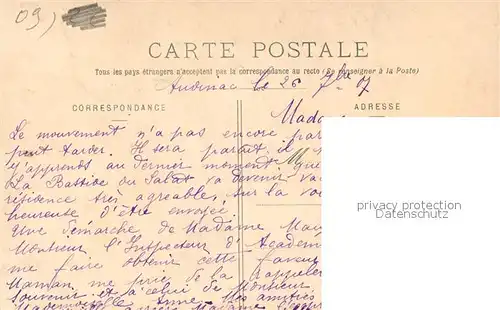 09)
CARTE POSTALE
Tous les pays étrangers n'acceptent pas la correspondance au recto (Se renseigner à la Poste)
Audinac le 26 7bre 07
CORRESPONDANCE
ADRESSE
Mada
Le mouvement n'a pas encore par
peut tarder. Il sera parait, il
j'apprends au dernier moment que
La Bastide du Salat va devenir
résidence très agréable, sur la
heureuse d'être envoyée
une démarche de Madame
Monsieur l'Inspecteur d'Academ
me faire obtenir cette faveur
Maman me prie de la rappeler
souvenir et à celui de Monsieur
Mademoiselle Anne. Mes amitiés
Madame
privacy protection
Datenschutz